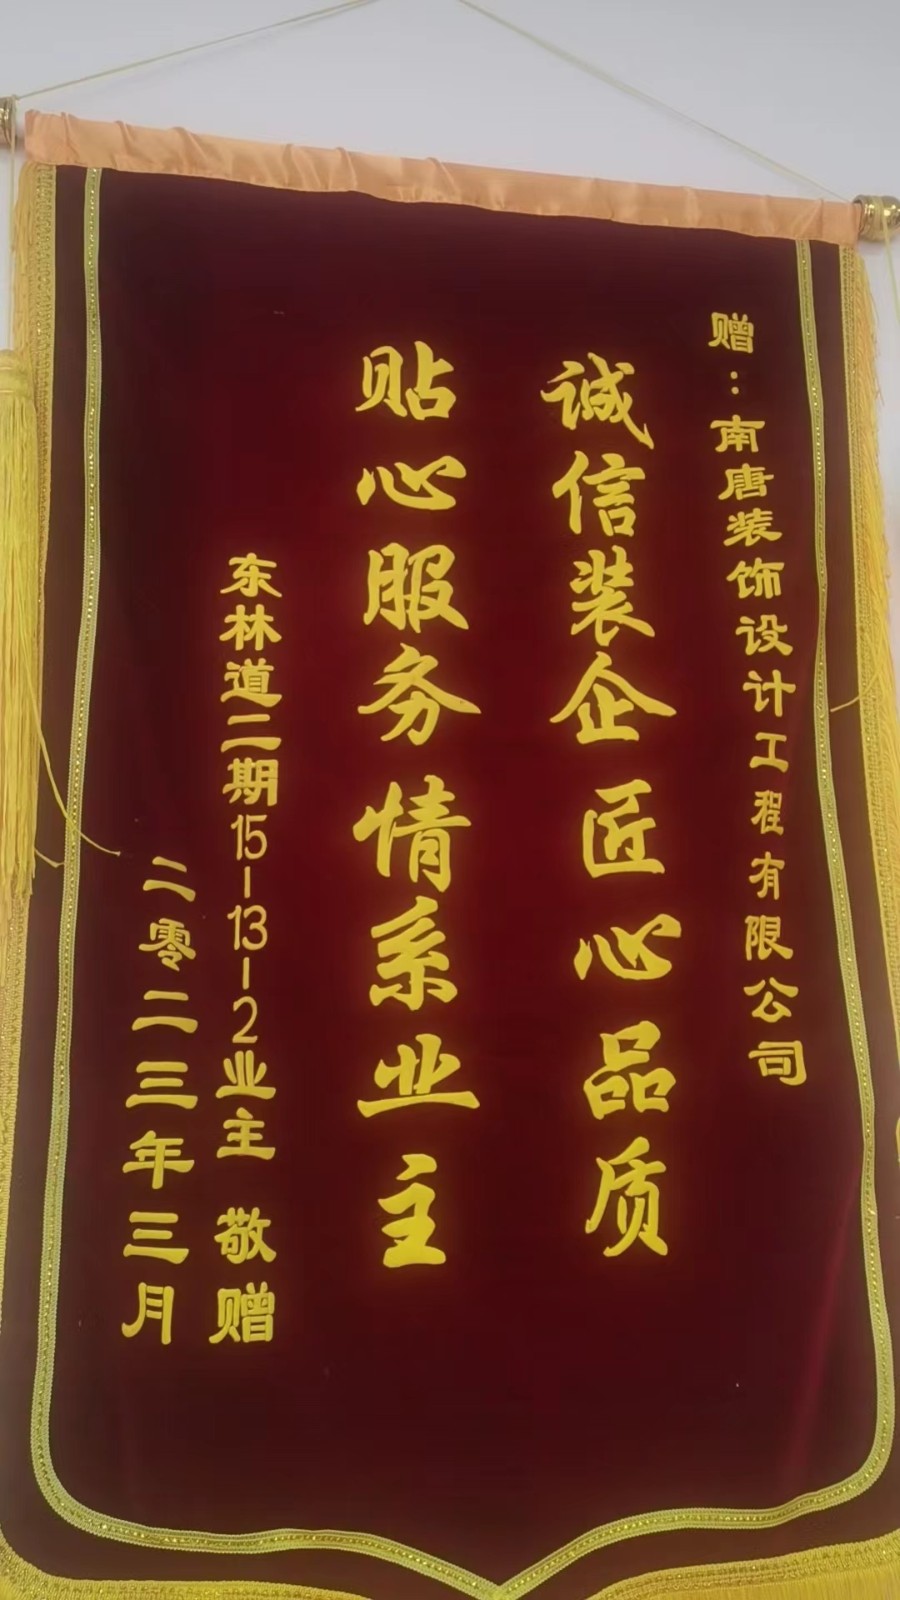 赠：南唐装饰设计工程有限公司
诚信装企 匠心品质
贴心服务 情系业主
东林道二期15-13-2业主 敬赠
二零二三年三月